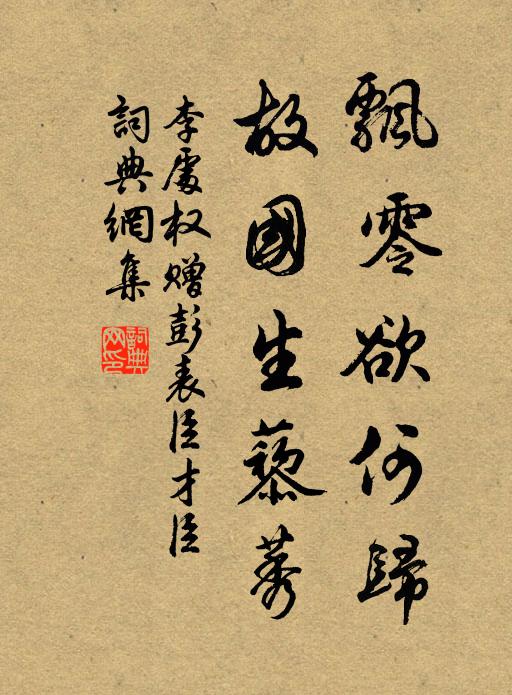 飄零欲何歸
故國生藜莠
李處权贈彭表臣才臣
詞典網集
詞典网印